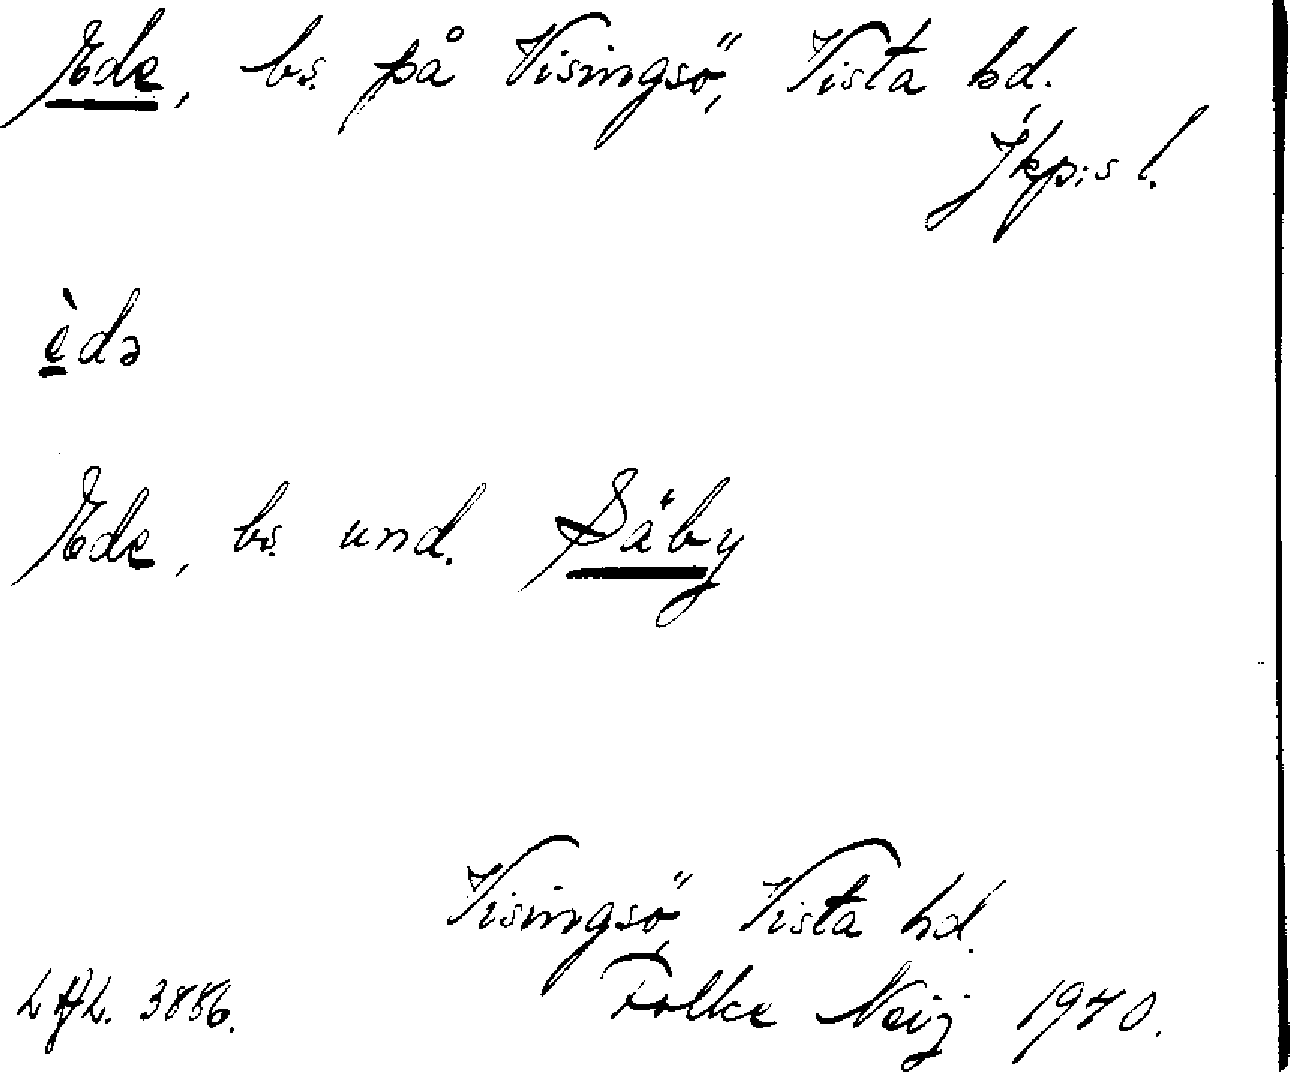 Ede, bs. på Visingsö, Vista hd.
Jkp:s l.
èdə
Ede, bs. und. Säby
Visingsö, Vista hd.
Folke Neij 1940.
3886.